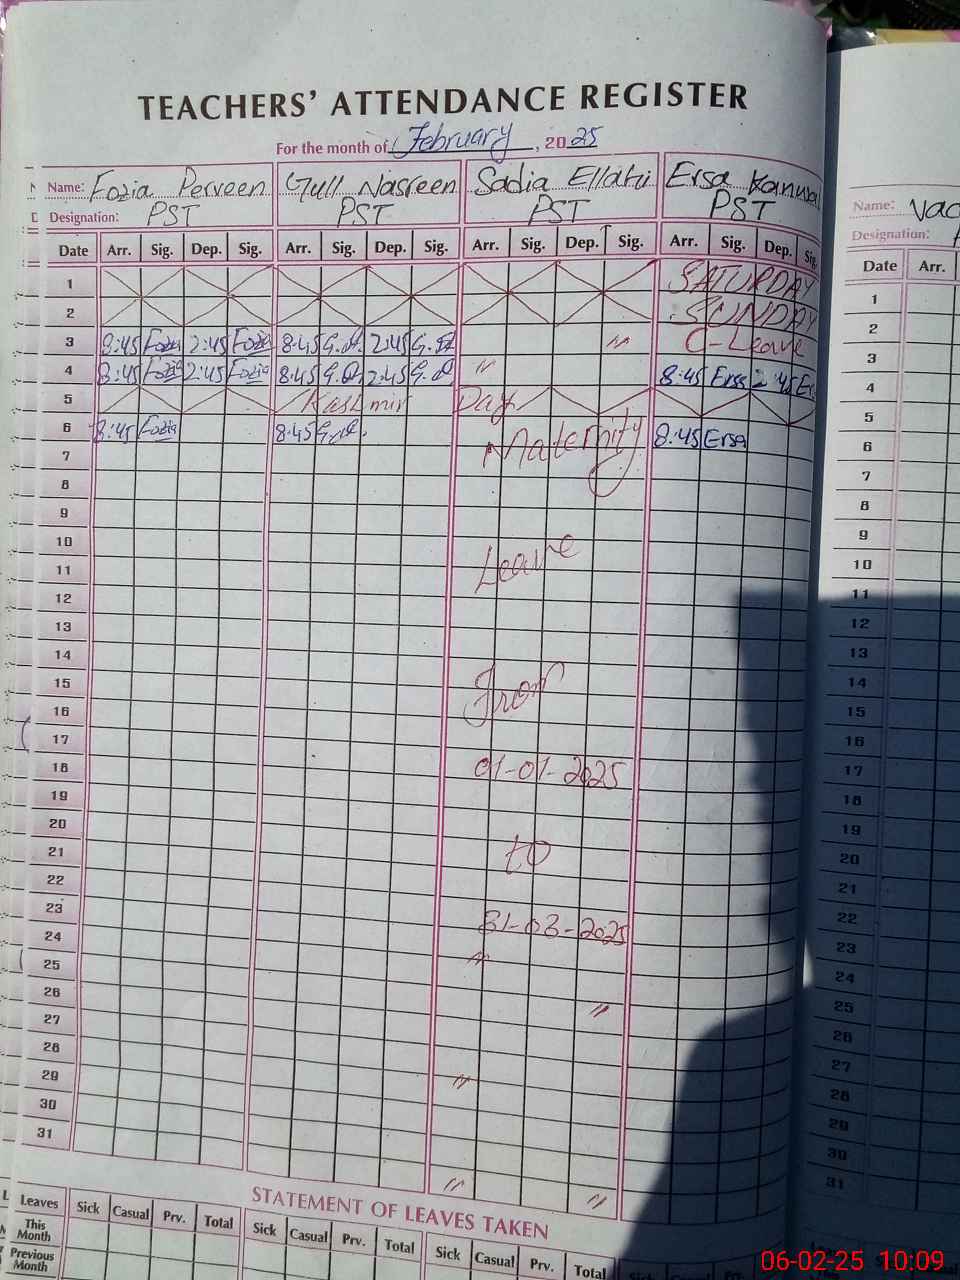 TEACHERS' ATTENDANCE REGISTER
For the month of February, 2025
Name: Fozia Perveen Gull Nasreen Sadia Ellahi Ersa Kanwal Name:
Designation: PST PST PST PST Designation:
Date Arr. Sig. Dep. Sig. Arr. Sig. Dep. Sig. Arr. Sig. Dep. Sig. Arr. Sig. Dep. Sig. Date Arr.
1 SATURDAY 1
2 SUNDAY 2
3 8:45 Fozia 2:45 Fozia 8:45 2:45 " C-Leave 3
4 8:45 Fozia 2:45 Fozia 8:45 2:45 " 8:45 Ersa 2:45 4
5 Kashmir Day 5
6 8:45 Fozia 8:45 Maternity 8:45 Ersa 6
7 7
8 8
9 9
10 Leave 10
11 11
12 12
13 13
14 14
15 From 15
16 16
17 17
18 01-01-2025 18
19 19
20 20
21 to 21
22 22
23 31-03-2025 23
24 " 24
25 25
26 " 26
27 27
28 28
29 " 29
30 30
31 31
" "
STATEMENT OF LEAVES TAKEN
Leaves Sick Casual Prv. Total Sick Casual Prv. Total Sick Casual Prv. Total
This Month
Previous Month
06-02-25 10:09